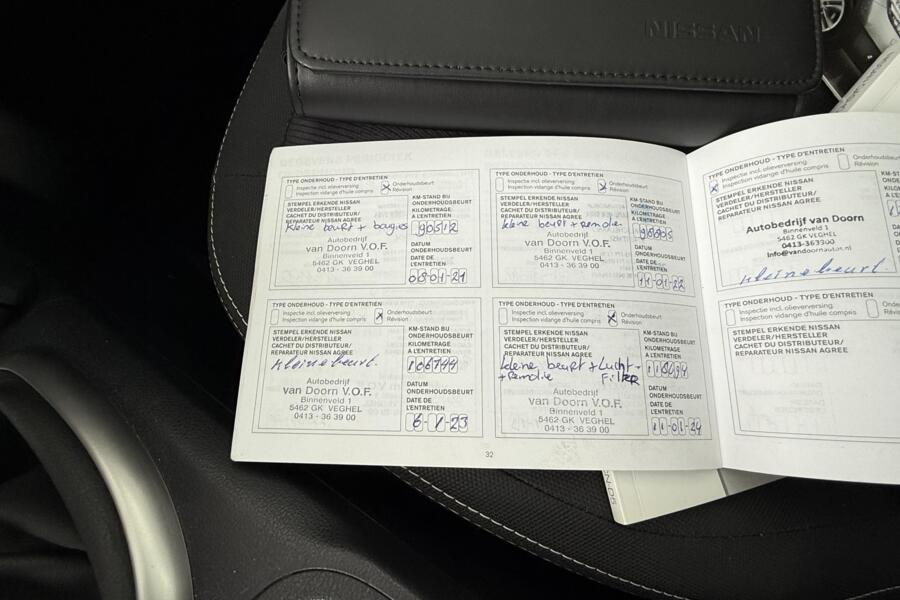 NISSAN
TYPE ONDERHOUD - TYPE D'ENTRETIEN
Inspectie incl. olieverversing
Inspection vidange d'huile compris
Onderhoudsbeurt
Révision
STEMPEL ERKENDE NISSAN
VERDELER/HERSTELLER
CACHET DU DISTRIBUTEUR/
REPARATEUR NISSAN AGREE
KM-STAND BIJ
ONDERHOUDSBEURT
KILOMETRAGE
A L'ENTRETIEN
kleine beurt + bougies
Autobedrijf
van Doorn V.O.F.
Binnenveld 1
5462 GK VEGHEL
0413 - 36 39 00
DATUM
ONDERHOUDSBEURT
DATE DE
L'ENTRETIEN
08-01-21
TYPE ONDERHOUD - TYPE D'ENTRETIEN
Inspectie incl. olieverversing
Inspection vidange d'huile compris
Onderhoudsbeurt
Révision
STEMPEL ERKENDE NISSAN
VERDELER/HERSTELLER
CACHET DU DISTRIBUTEUR/
REPARATEUR NISSAN AGREE
KM-STAND BIJ
ONDERHOUDSBEURT
KILOMETRAGE
A L'ENTRETIEN
kleine beurt + remolie
Autobedrijf
van Doorn V.O.F.
Binnenveld 1
5462 GK VEGHEL
0413 - 36 39 00
DATUM
ONDERHOUDSBEURT
DATE DE
L'ENTRETIEN
11-01-22
TYPE ONDERHOUD - TYPE D'ENTRETIEN
Inspectie incl. olieverversing
Inspection vidange d'huile compris
Onderhoudsbeurt
Révision
STEMPEL ERKENDE NISSAN
VERDELER/HERSTELLER
CACHET DU DISTRIBUTEUR/
REPARATEUR NISSAN AGREE
Autobedrijf van Doorn
Binnenveld 1
5462 GK VEGHEL
0413-363900
info@vandoornautos.nl
kleine beurt.
TYPE ONDERHOUD - TYPE D'ENTRETIEN
Inspectie incl. olieverversing
Inspection vidange d'huile compris
Onderhoudsbeurt
Révision
STEMPEL ERKENDE NISSAN
VERDELER/HERSTELLER
CACHET DU DISTRIBUTEUR/
REPARATEUR NISSAN AGREE
KM-STAND BIJ
ONDERHOUDSBEURT
KILOMETRAGE
A L'ENTRETIEN
106744
kleine beurt.
Autobedrijf
van Doorn V.O.F.
Binnenveld 1
5462 GK VEGHEL
0413 - 36 39 00
DATUM
ONDERHOUDSBEURT
DATE DE
L'ENTRETIEN
6 1-23
TYPE ONDERHOUD - TYPE D'ENTRETIEN
Inspectie incl. olieverversing
Inspection vidange d'huile compris
Onderhoudsbeurt
Révision
STEMPEL ERKENDE NISSAN
VERDELER/HERSTELLER
CACHET DU DISTRIBUTEUR/
REPARATEUR NISSAN AGREE
KM-STAND BIJ
ONDERHOUDSBEURT
KILOMETRAGE
A L'ENTRETIEN
kleine beurt + Lucht-
+ Remolie Filter
Autobedrijf
van Doorn V.O.F.
Binnenveld 1
5462 GK VEGHEL
0413 - 36 39 00
DATUM
ONDERHOUDSBEURT
DATE DE
L'ENTRETIEN
11-01-24
TYPE ONDERHOUD - TYPE D'ENTRETIEN
Inspectie incl. olieverversing
Inspection vidange d'huile compris
STEMPEL ERKENDE NISSAN
VERDELER/HERSTELLER
CACHET DU DISTRIBUTEUR/
REPARATEUR NISSAN AGREE
32